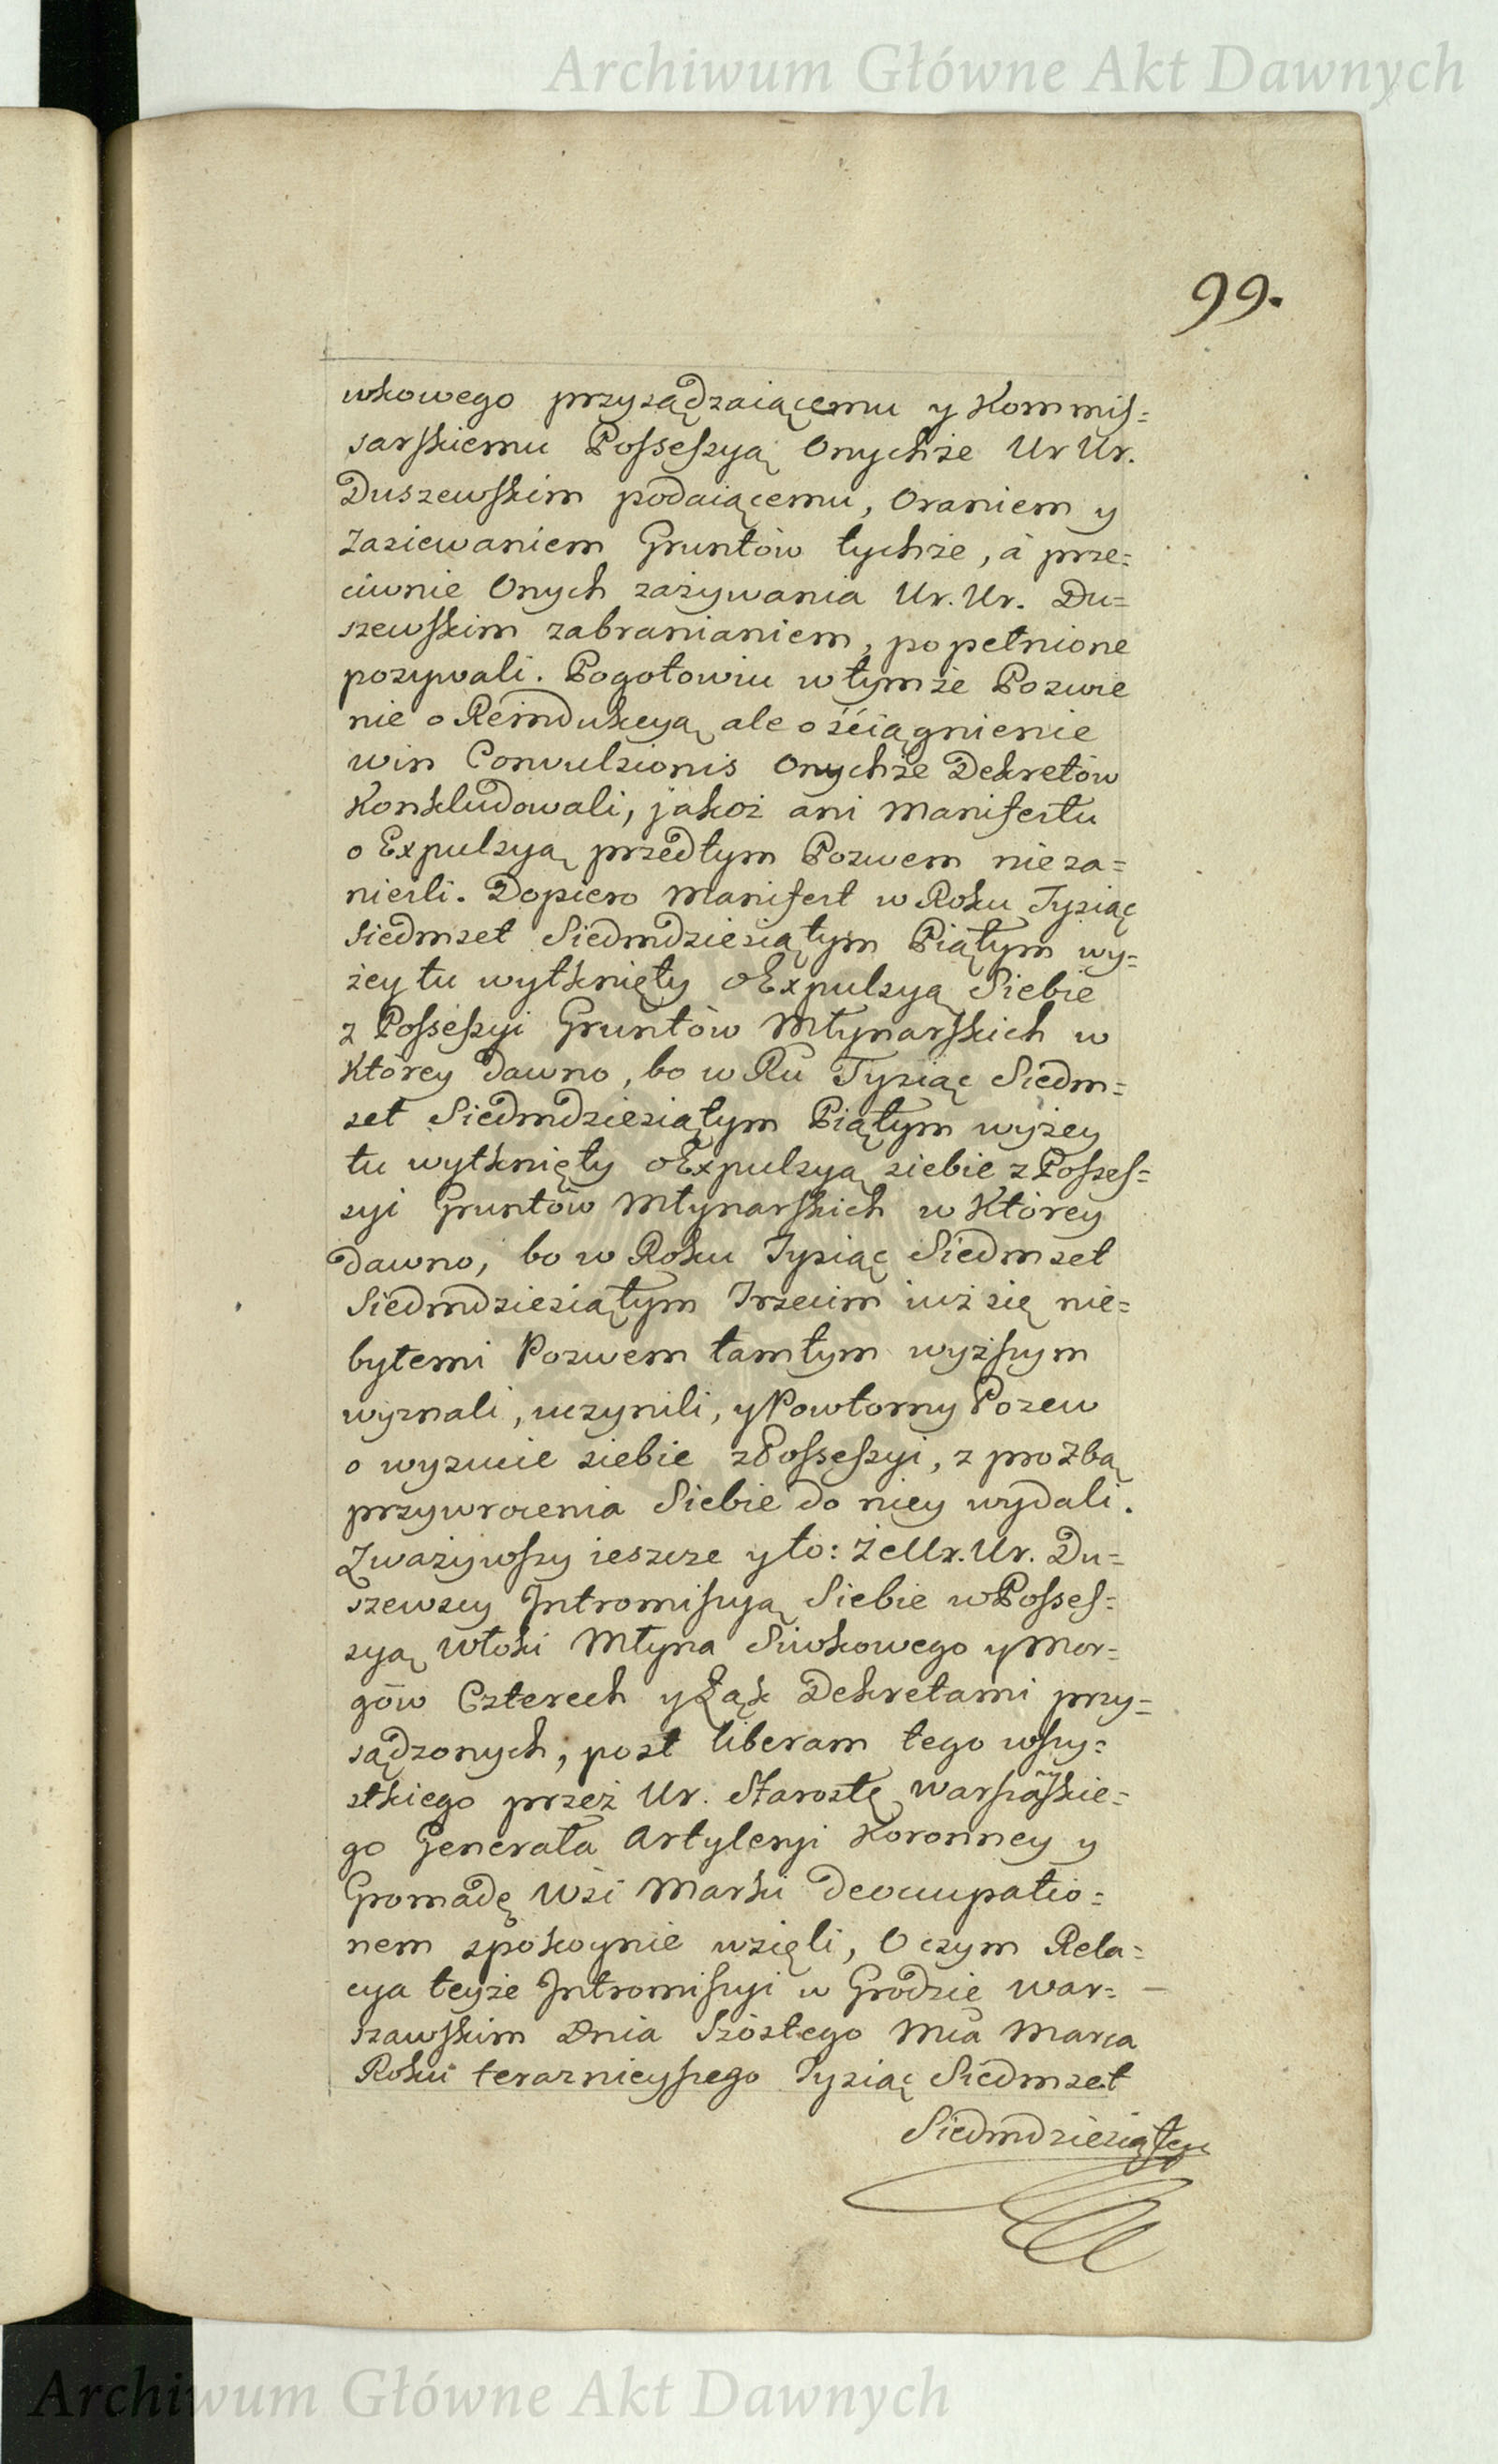 Archiwum Główne Akt Dawnych
99.
wkowego przysądzaiącemu y Kommis=
sarskiemu Possessyą Onychże Ur Ur.
Duszewskim podaiącemu, Oraniem y
Zasiewaniem Gruntów tychże, á prze=
ciwnie Onych zażywania Ur. Ur. Du=
szewskim zabranianiem, popełnione
pozywali. Pogotowiu w tymże Pozwie
nie o Reindukcyą ale o ściągnienie
win Convulsionis Onychże Dekretów
Konkludowali, jakoż ani Manifestu
o Expulsyą przed tym Pozwem nie za=
nieśli. Dopiero Manifest w Roku Tysiąc
Siedmset Siedmdziesiątym Piątym wy=
żey tu wytknięty o Expulsyą Siebie
z Possessyi Gruntów Młynarskich w
Którey dawno, bo w Ru Tysiąc Siedm=
set Siedmdziesiątym Piątym wyżey
tu wytknięty o Expulsyą siebie z Posses=
syi Gruntów Młynarskich w Którey
dawno, bo w Roku Tysiąc Siedmset
Siedmdziesiątym Trzecim iuż się nie=
bytemi Pozwem tamtym wyższym
wyznali, uczynili, y Powtorny Pozew
o wyzucie siebie z Possessyi, z proźbą
przywrocenia Siebie do niey wydali.
Zważywszy ieszcze y to: że Ur. Ur. Du=
szewscy Intromissyą Siebie w Posses=
syą Włoki Młyna Siwkowego y Mor=
gów Czterech y Łąk Dekretami przy=
sądzonych, post liberam tego wszy=
stkiego przez Ur. Starostę Warszaskie=
go Generała Artyleryi Koronney y
Gromadę Wsi Marki deoccupatio=
nem spokoynie wzięli, O czym Rela=
cya teyże Intromissyi w Grodzie War=
szawskim Dnia Szóstego Mca Marca
Roku teraznieyszego Tysiąc Siedmset
Siedmdziesiątego
Archiwum Główne Akt Dawnych